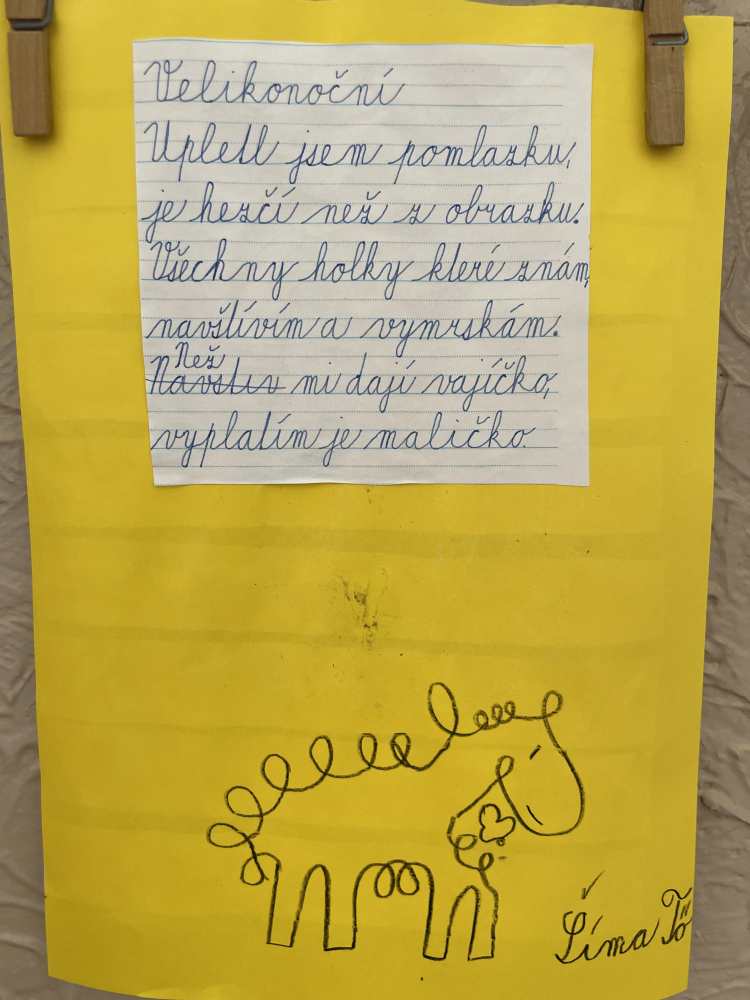 Velikonoční
Upletl jsem pomlazku,
je hezčí než z obrazku.
Všechny holky které znám,
navštívím a vymrskám.
Než
Navštiv mi dají vajíčko,
vyplatím je maličko.
Šíma Tö